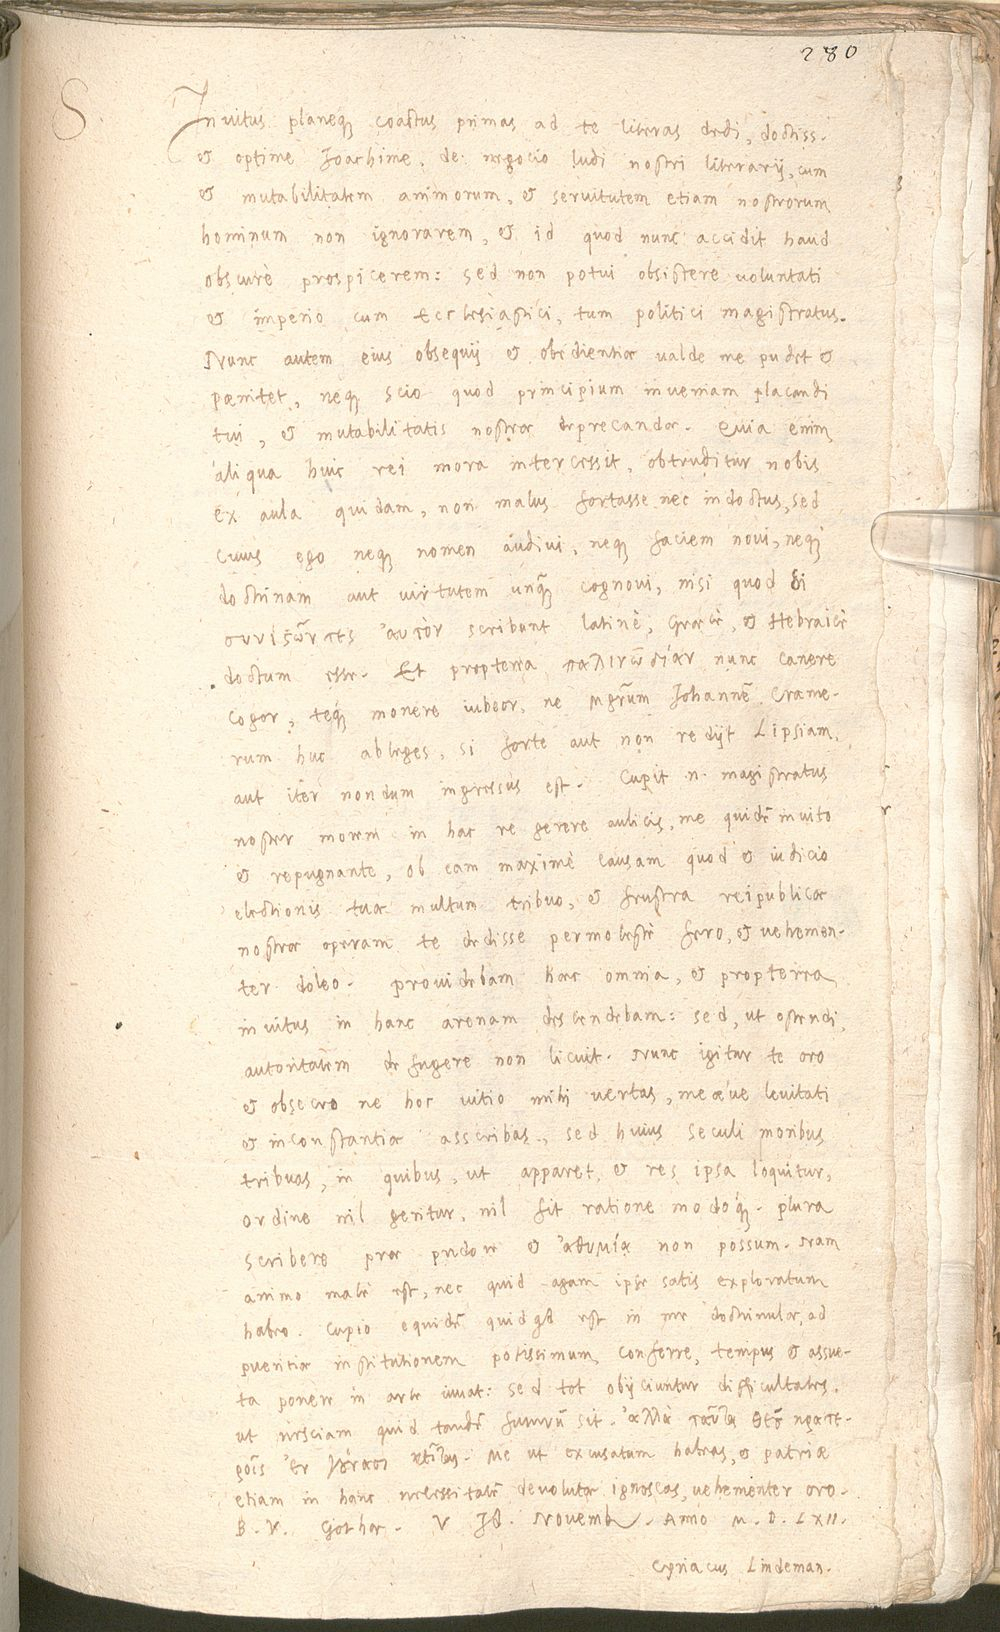 280
S.
Invitus planeq; coactus primas ad te literas dedi, doctiss.
et optime Joachime, de negocio ludi nostri literarij, cum
et mutabilitatem animorum, et servitutem etiam nostrorum
hominum non ignorarem, et id quod nunc accidit haud
obscurè prospicerem: sed non potui obsistere voluntati
et imperio cum Ecclesiastici, tum politici magistratus.
Nunc autem eius obsequij et obedientiae valde me pudet et
paenitet, neq; scio quod principium inveniam placandi
tui, et mutabilitatis nostrae deprecandae. Quia enim
aliqua huic rei mora intercessit, obtruditur nobis
ex aula quidam, non malus fortasse nec indoctus, sed
cuius ego neq; nomen audivi, neq; faciem novi, neq;
doctrinam aut virtutem unq̃ cognovi, nisi quod οἱ
συνιϛῶντες αὐτὸν scribunt latinè, Graecè, et Hebraicè
doctum esse. Et propterea παλινῳδίαν nunc canere
cogor, teq; monere iubeor, ne Mgrũm Johannẽ Crame-
rum huc ableges, si fortè aut non redijt Lipsiam,
aut iter nondum ingressus est. Cupit n. magistratus
noster morem in hac re gerere aulicis, me quidẽ invito
et repugnante, ob eam maximè causam quod et iudicio
electionis tuae multum tribuo, et frustra reipublicae
nostrae operam te dedisse permolestè fero, et vehemen-
ter doleo. Providebam haec omnia, et propterea
invitus in hanc arenam descendebam: sed, ut ostendi,
autoritatem defugere non licuit. Nunc igitur te oro
et obsecro ne hoc vitio mihi vertas, meaeve levitati
et inconstantiae asscribas, sed huius seculi moribus
tribuas, in quibus, ut apparet, et res ipsa loquitur,
ordine nil geritur, nil fit ratione modoq;. Plura
scribere prae pudore et ἀθυμίᾳ non possum. Nam
animo malè est, nec quid agam ipse satis exploratum
habeo. Cupio equidẽ quidqd est in me doctrinulae, ad
pueritiae institutionem potissimum conferre, tempus et assue-
ta ponere in arte iuvat: sed tot obijciuntur difficultates,
ut nesciam quid tandẽ futurũ sit. Ἀλλὰ ταῦτα θεοῦ
ἐν γούνασι κεῖται. Me ut excusatum habeas, et patriae
etiam in hanc necessitatẽ devolutae ignoscas, vehementer oro.
B. V. Gothae. V Id. Novemb. Anno M. D. LXII.
Cyriacus Lindeman.